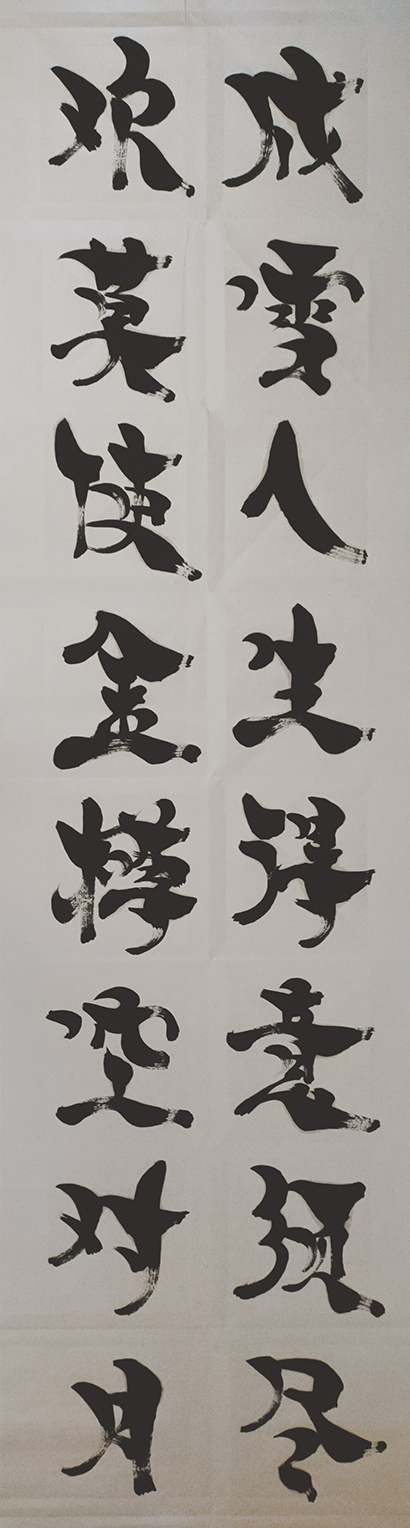 成雪人生得意须尽
欢莫使金樽空对月